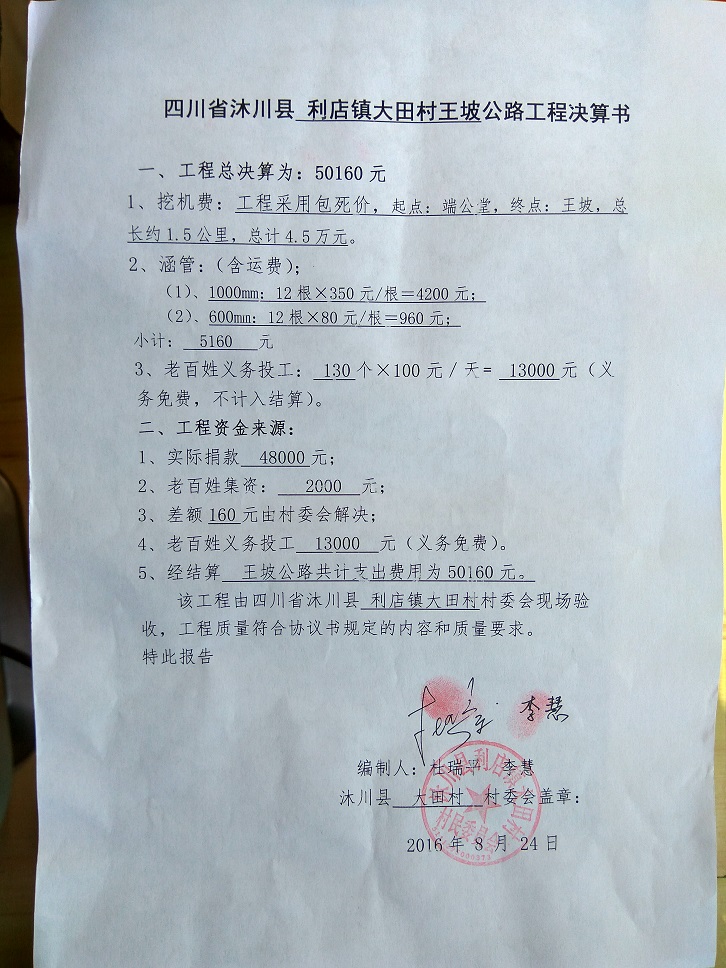 四川省沐川县 利店镇大田村王坡公路工程决算书
一、工程总决算为：50160元
1、挖机费：工程采用包死价，起点：端公堂，终点：王坡，总
长约1.5公里，总计4.5万元。
2、涵管：（含运费）；
（1）、1000mm：12根×350元/根＝4200元；
（2）、600mm：12根×80元/根＝960元；
小计： 5160 元
3、老百姓义务投工：130个×100元／天= 13000元（义
务免费，不计入结算）。
二、工程资金来源：
1、实际捐款 48000元；
2、老百姓集资： 2000 元；
3、差额160元由村委会解决；
4、老百姓义务投工 13000 元（义务免费）。
5、经结算 王坡公路共计支出费用为50160元。
该工程由四川省沐川县 利店镇大田村村委会现场验
收，工程质量符合协议书规定的内容和质量要求。
特此报告
李慧
编制人：杜瑞平 李慧
沐川县 大田村 村委会盖章：
沐川县利店镇大田村
村民委员会
2016年8月24日